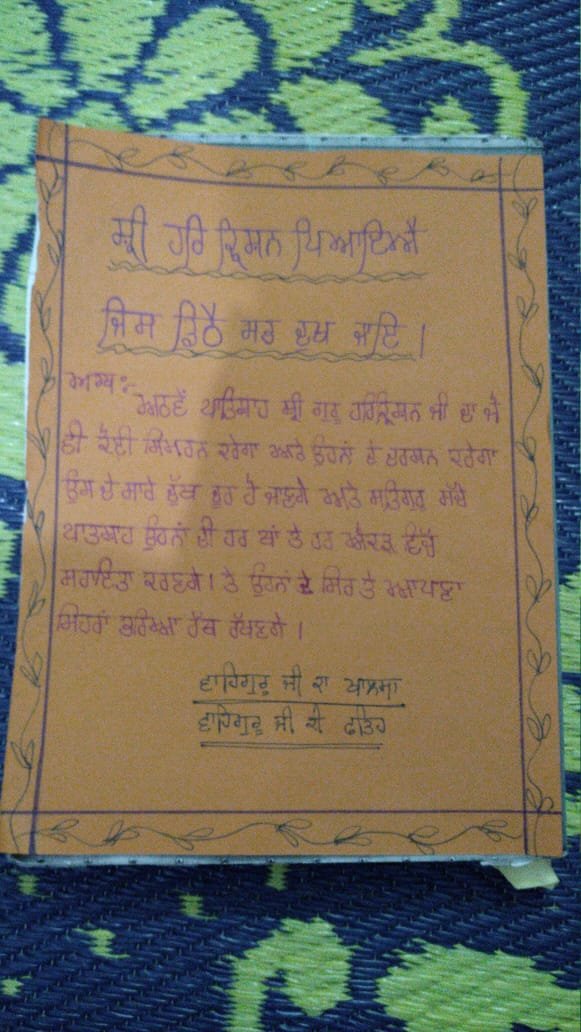 ਸ਼੍ਰੀ ਹਰਿ ਕ੍ਰਿਸ਼ਨ ਧਿਆਇਐ
ਜਿਸ ਡਿਠੈ ਸਭ ਦੁਖ ਜਾਇ ।
ਅਰਥ :-
ਅਠਵੇਂ ਪਾਤਿਸ਼ਾਹ ਸ਼੍ਰੀ ਗੁਰੂ ਹਰਿਕ੍ਰਿਸ਼ਨ ਜੀ ਦਾ ਜੋ
ਵੀ ਕੋਈ ਸਿਮਰਨ ਕਰੇਗਾ ਅਤੇ ਉਹਨਾਂ ਦੇ ਦਰਸ਼ਨ ਕਰੇਗਾ
ਉਸ ਦੇ ਸਾਰੇ ਦੁੱਖ ਦੂਰ ਹੋ ਜਾਣਗੇ ਅਤੇ ਸਤਿਗੁਰੂ ਸੱਚੇ
ਪਾਤਸ਼ਾਹ ਉਹਨਾਂ ਦੀ ਹਰ ਥਾਂ ਤੇ ਹਰ ਔਕੜ ਵਿੱਚ
ਸਹਾਇਤਾ ਕਰਣਗੇ । ਤੇ ਉਹਨਾਂ ਦੇ ਸਿਰ ਤੇ ਆਪਣਾ
ਮਿਹਰਾਂ ਭਰਿਆ ਹੱਥ ਰੱਖਣਗੇ ।
ਵਾਹਿਗੁਰੂ ਜੀ ਕਾ ਖਾਲਸਾ
ਵਾਹਿਗੁਰੂ ਜੀ ਕੀ ਫਤਿਹ